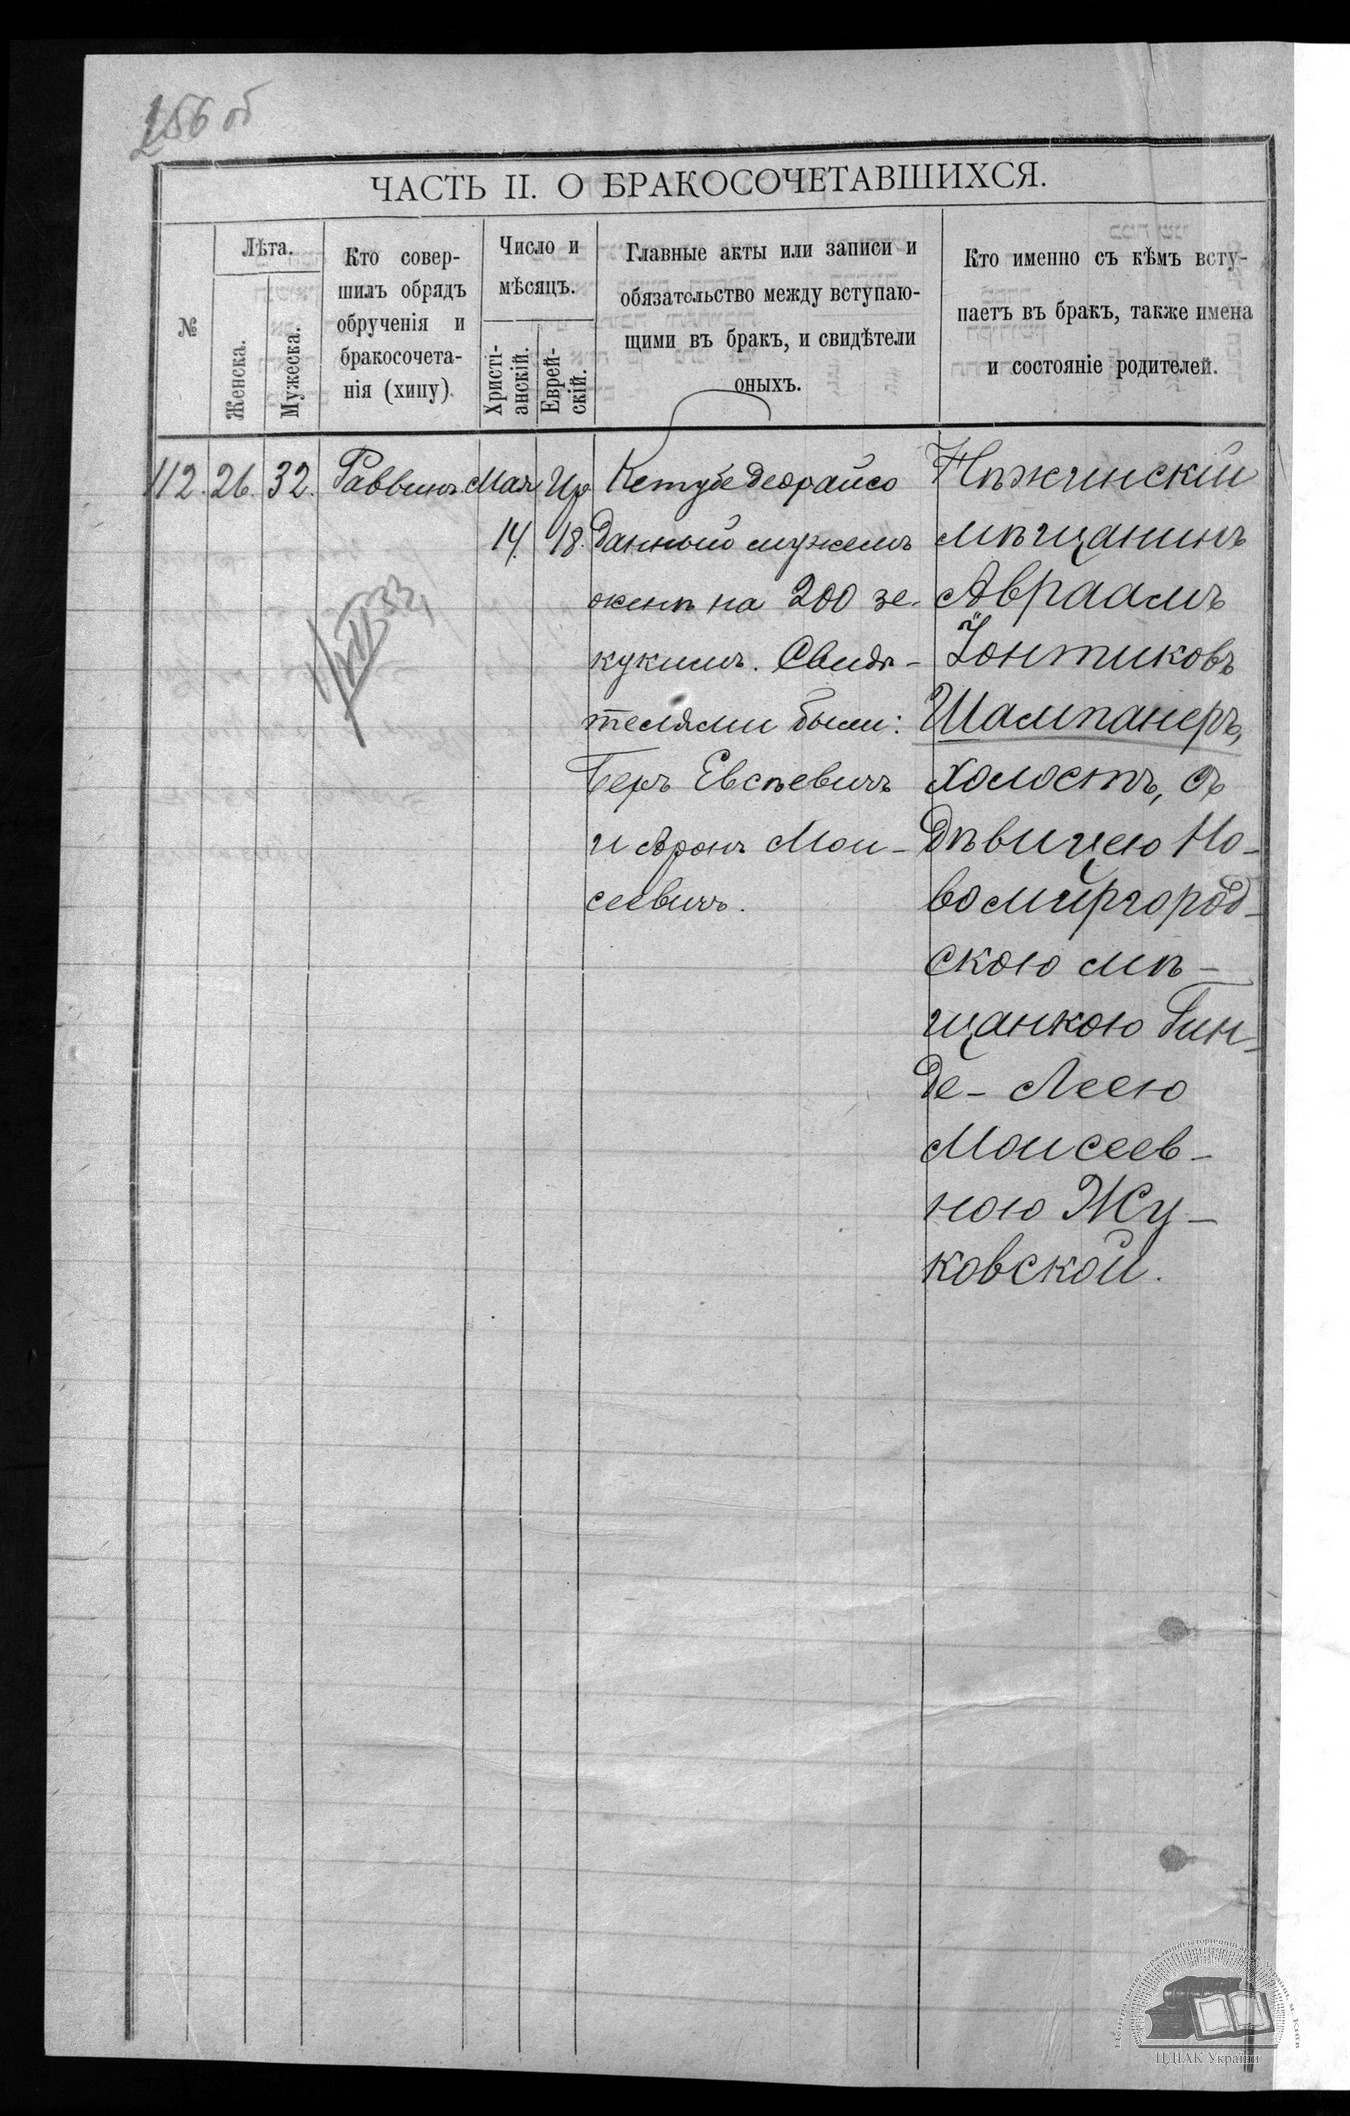 256 об
ЧАСТЬ II. О БРАКОСОЧЕТАВШИХСЯ.
№
Лѣта.
Женска.
Мужеска.
Кто совер-
шилъ обрядъ
обрученія и
бракосочета-
нія (хипу).
Число и
мѣсяцъ.
Христі-
анскій.
Еврей-
скій.
Главные акты или записи и
обязательство между вступаю-
щими въ бракъ, и свидѣтели
оныхъ.
Кто именно съ кѣмъ всту-
паетъ въ бракъ, также имена
и состояніе родителей.
112.
26.
32.
Раввинъ.
Мая
14.
Ир
18.
Кетубе деорайсо
данный мужемъ
женѣ на 200 зе-
кукимъ. Свидѣ-
телями были:
Беръ Евсѣевичъ
и Аронъ Мои-
сеевичъ.
Нѣжинскій
мѣщанинъ
Авраамъ
Іонтиковъ
Шампанеръ,
холостъ, съ
дѣвицею Но-
вомиргород-
скою мѣ-
щанкою Гин-
де - Леею
Моисеев-
ною Жу-
ковской.
ЦДІАК України